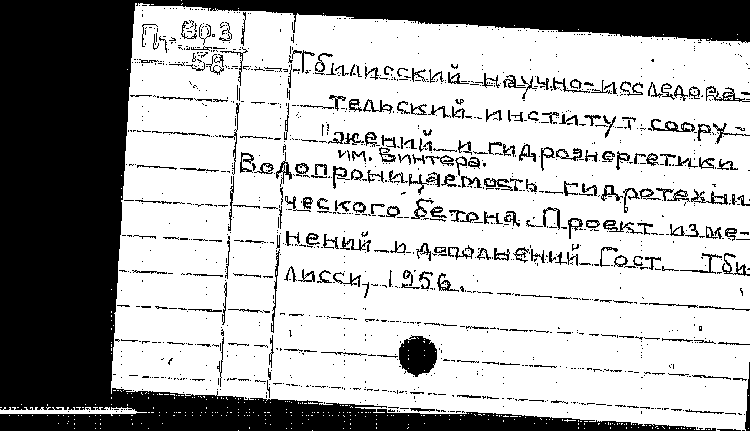 Пт 80.3
58
Тбилисский научно-исследова-
тельский институт соору-
жений и гидроэнергетики
им. Винтера.
Водопроницаемость гидротехни-
ческого бетона. Проект изме-
нений и дополнений Гост. Тби-
лисси, 1956.